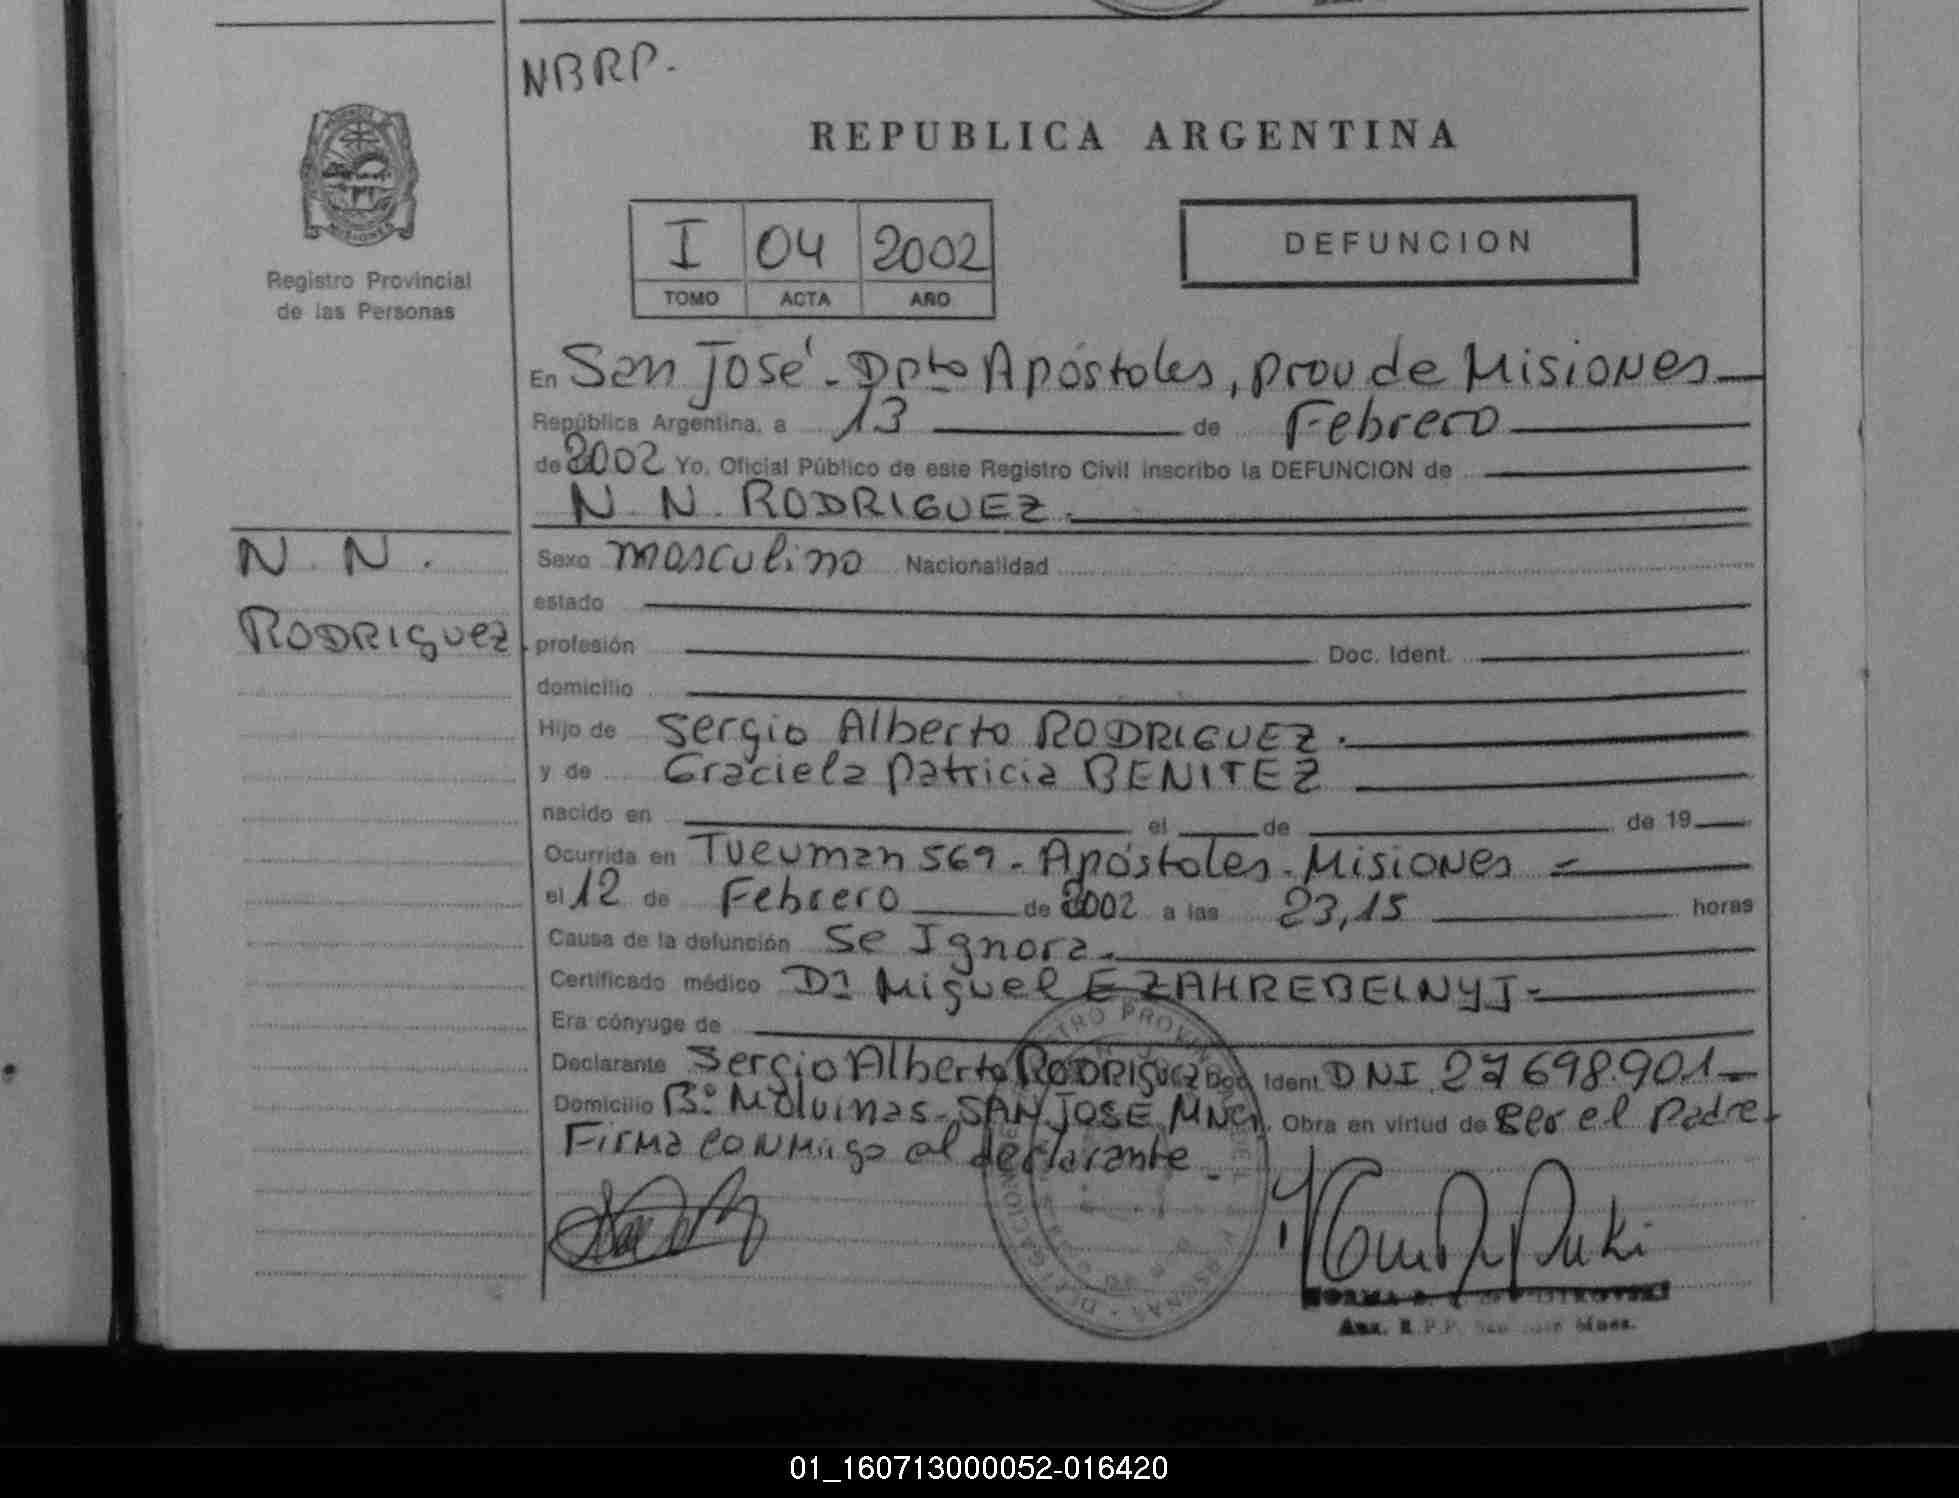 NBRP.
REPUBLICA ARGENTINA
I 04 2002
TOMO ACTA AÑO
DEFUNCION
MISIONES
Registro Provincial
de las Personas
N. N.
RODRIGUEZ
En San José - Dpto Apóstoles, prov de Misiones
República Argentina, a 13 de Febrero
de 2002 Yo, Oficial Público de este Registro Civil inscribo la DEFUNCION de
N. N. RODRIGUEZ.
Sexo masculino Nacionalidad
estado
profesión Doc. Ident.
domicilio
Hijo de Sergio Alberto RODRIGUEZ.
y de Graciela Patricia BENITEZ
nacido en el de de 19
Ocurrida en Tucuman 569 - Apóstoles - Misiones =
el 12 de Febrero de 2002 a las 23,15 horas
Causa de la defunción Se Ignora.
Certificado médico Dr Miguel E ZAHREBELNYJ -
Era cónyuge de
Declarante Sergio Alberto RODRIGUEZ Doc. Ident. DNI 27698.901
Domicilio Bº Malvinas - SAN JOSE, Mnes. Obra en virtud de ser el Padre.
Firma conmigo el declarante.
NORMA B.
Aux. R.P.P. San José Mnes.
01_160713000052-016420